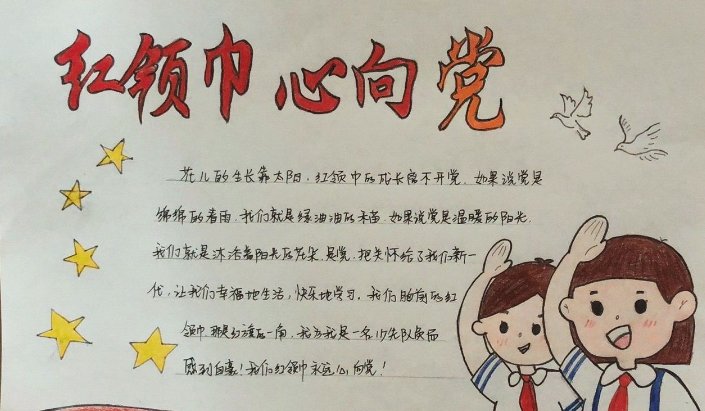 红领巾 心向党
花儿的生长靠太阳，红领巾的成长离不开党，如果说党是
绵绵的春雨，我们就是绿油油的禾苗，如果说党是温暖的阳光，
我们就是沐浴着阳光的花朵，是党，把关怀给了我们新一
代，让我们幸福地生活，快乐地学习，我们胸前的红
领巾那是红旗的一角，我为我是一名少先队员而
感到自豪！我们红领巾永远心向党！